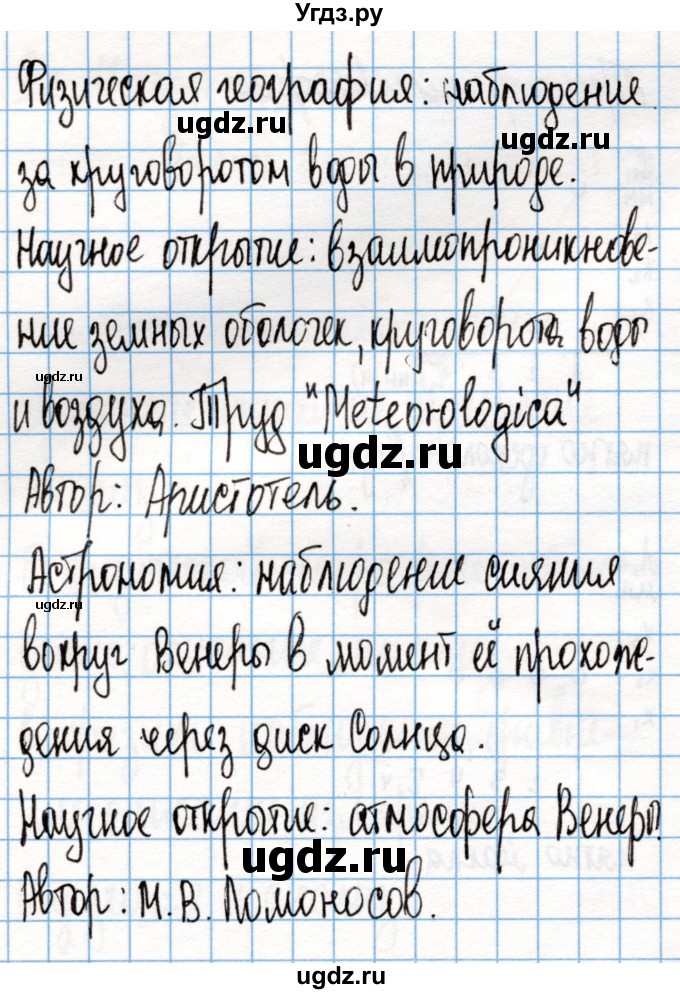 Угдз.ру
Физическая география: наблюдение
ugdz.ru
за круговоротом воды в природе.
Научное открытие: взаимопроникнове-
ние земных оболочек, круговорота воды
ugdz.ru
и воздуха. Труд "Meteorologica"
ugdz.ru
Автор: Аристотель.
Астрономия: наблюдение сияния
ugdz.ru
вокруг Венеры в момент её прохож-
дения через диск Солнца.
Научное открытие: атмосфера Венеры.
ugdz.ru
Автор: М. В. Ломоносов.
ugdz.ru